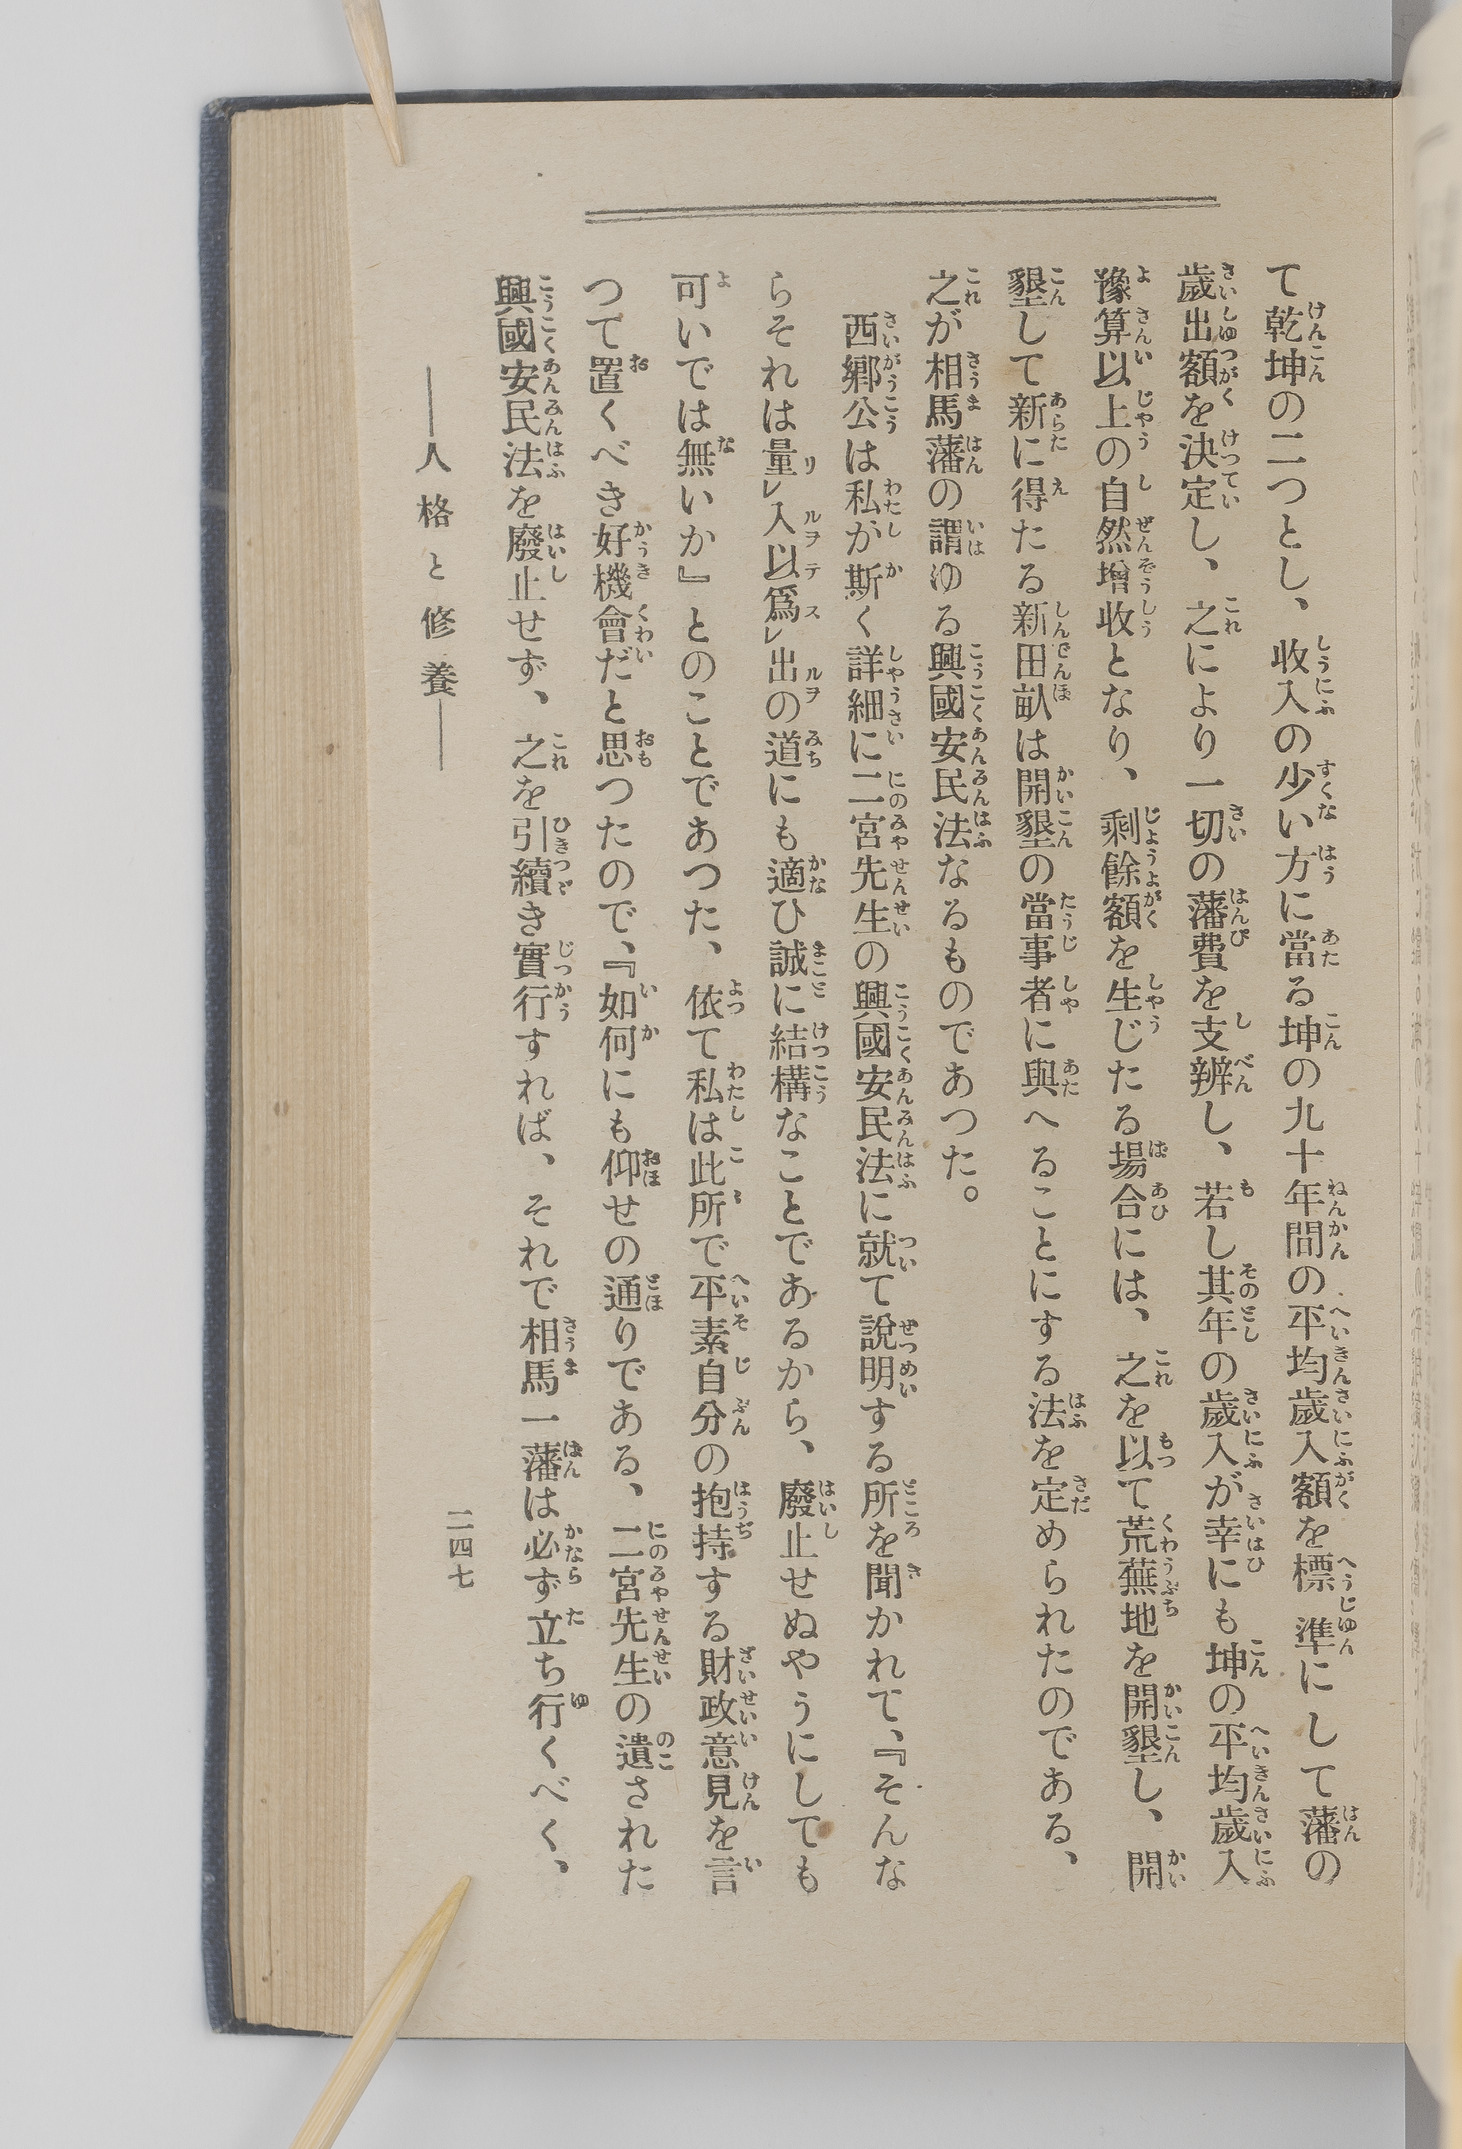 て乾坤の二つとし、收入の少い方に當る坤の九十年間の平均歲入額を標準にして藩の
歲出額を決定し、之により一切の藩費を支辨し、若し其年の歲入が幸にも坤の平均歲入
豫算以上の自然增收となり、剩餘額を生じたる場合には、之を以て荒蕪地を開墾し、開
墾して新に得たる新田畝は開墾の當事者に與へることにする法を定められたのである、
之が相馬藩の謂ゆる興國安民法なるものであつた。
西鄕公は私が斯く詳細に二宮先生の興國安民法に就て說明する所を聞かれて、『そんな
らそれは量レ入以爲レ出の道にも適ひ誠に結構なことであるから、廢止せぬやうにしても
可いでは無いか』とのことであつた、依て私は此所で平素自分の抱持する財政意見を言
つて置くべき好機會だと思つたので、『如何にも仰せの通りである、二宮先生の遺された
興國安民法を廢止せず、之を引續き實行すれば、それで相馬一藩は必ず立ち行くべく、
――人格と修養――
二四七